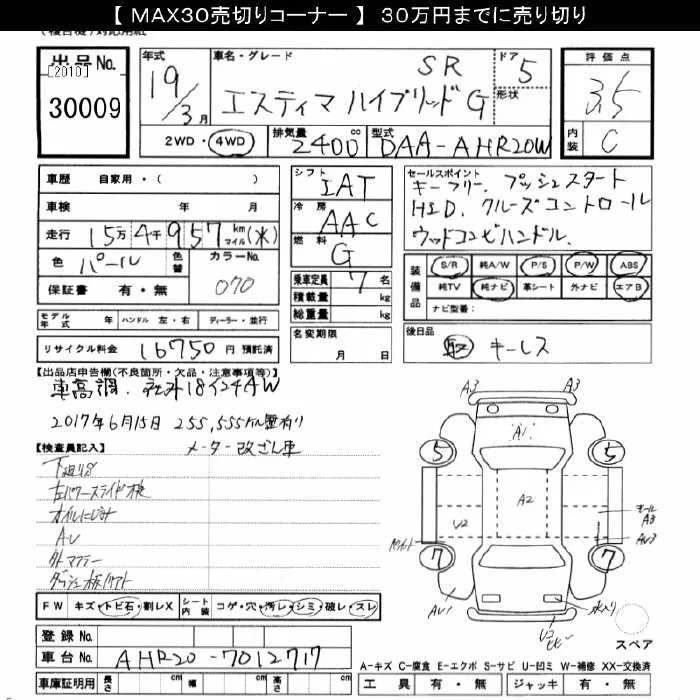 【 MAX30売切りコーナー 】 30万円までに売り切り
(複合機) 対応用紙
出品No.
[2010]
30009
年式
19/3月
車名・グレード
SR
エスティマ ハイブリッド G
ドア
5
形状
評価点
3.5
内装
C
2WD・4WD
排気量
2400
cc
型式
DAA-AHR20W
車歴 自家用・( )
車検 年 月
走行 15万 4千 957 km マイル (米)
色 パール
色替
カラーNo.
070
保証書 有・無
シフト
IAT
冷房
AAC
燃料
G
乗車定員 7 名
積載量 kg
総重量 kg
セールスポイント
キーフリー. プッシュスタート
HID. クルーズコントロール
ウッドコンビハンドル.
装備品
S/R 純A/W P/S P/W ABS
純TV 純ナビ 革シート 外ナビ エアB
ナビ型番:
モデル年式 年 ハンドル 左・右 ディーラー・並行
リサイクル料金 16750 円 預託済
名変期限
月 日
後日品
キーレス
【出品店申告欄(不良箇所・欠品・注意事項等)】
車高調. 社外18インチAW
2017年6月15日 255,555
メーター改ざん車
【検査員記入】
左パワースライド
オイルにじみ
AU
外マフラー
FW キズ・トビ石・割レX
シート内装 コゲ・穴・汚レ・シミ・破レ・スレ
登録No.
車台No. AHR20-7012717
車庫証明用 長さ cm 幅 cm 高さ cm
A3 A3
A1
5 5
A2
U2
モール
A3
AU3
7 7
AU1
水入り
U2
スペア
A-キズ C-腐食 E-エクボ S-サビ U-凹ミ W-補修 XX-交換済
工具 有・無 ジャッキ 有・無